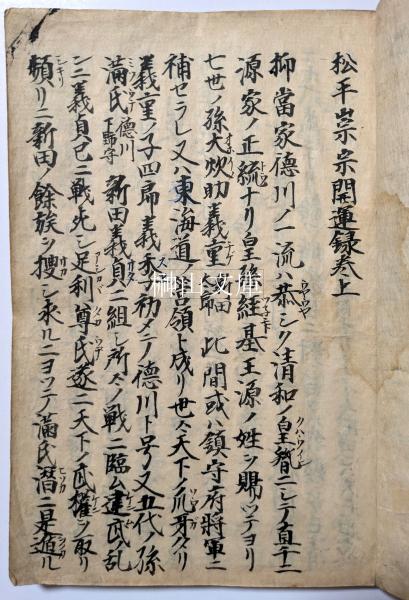 松平崇宗開運録巻上
抑當家德川ノ一流ハ恭シク清和ノ皇胤ニシテ直ニ
源家ノ正統ナリ皇孫経基王源ノ姓ヲ賜ツテヨリ
七世ノ孫大炊助義重 此間或ハ鎮守府將軍ニ
補セラレ又ハ東海道ノ管領ト成リ世々天下ノ爪牙タリ
義重ノ子四郎義季初メテ德川ト号ス又五代ノ孫
満氏 德川下野守 新田義貞ニ組シ所々ノ戰ニ臨ム建武ノ乱
ニ義貞已ニ戰死シ足利尊氏遂ニ天下ノ武權ヲ取リ
頻リニ新田ノ餘族ヲ搜シ求ルニヨツテ満氏潜ニ是遁ル